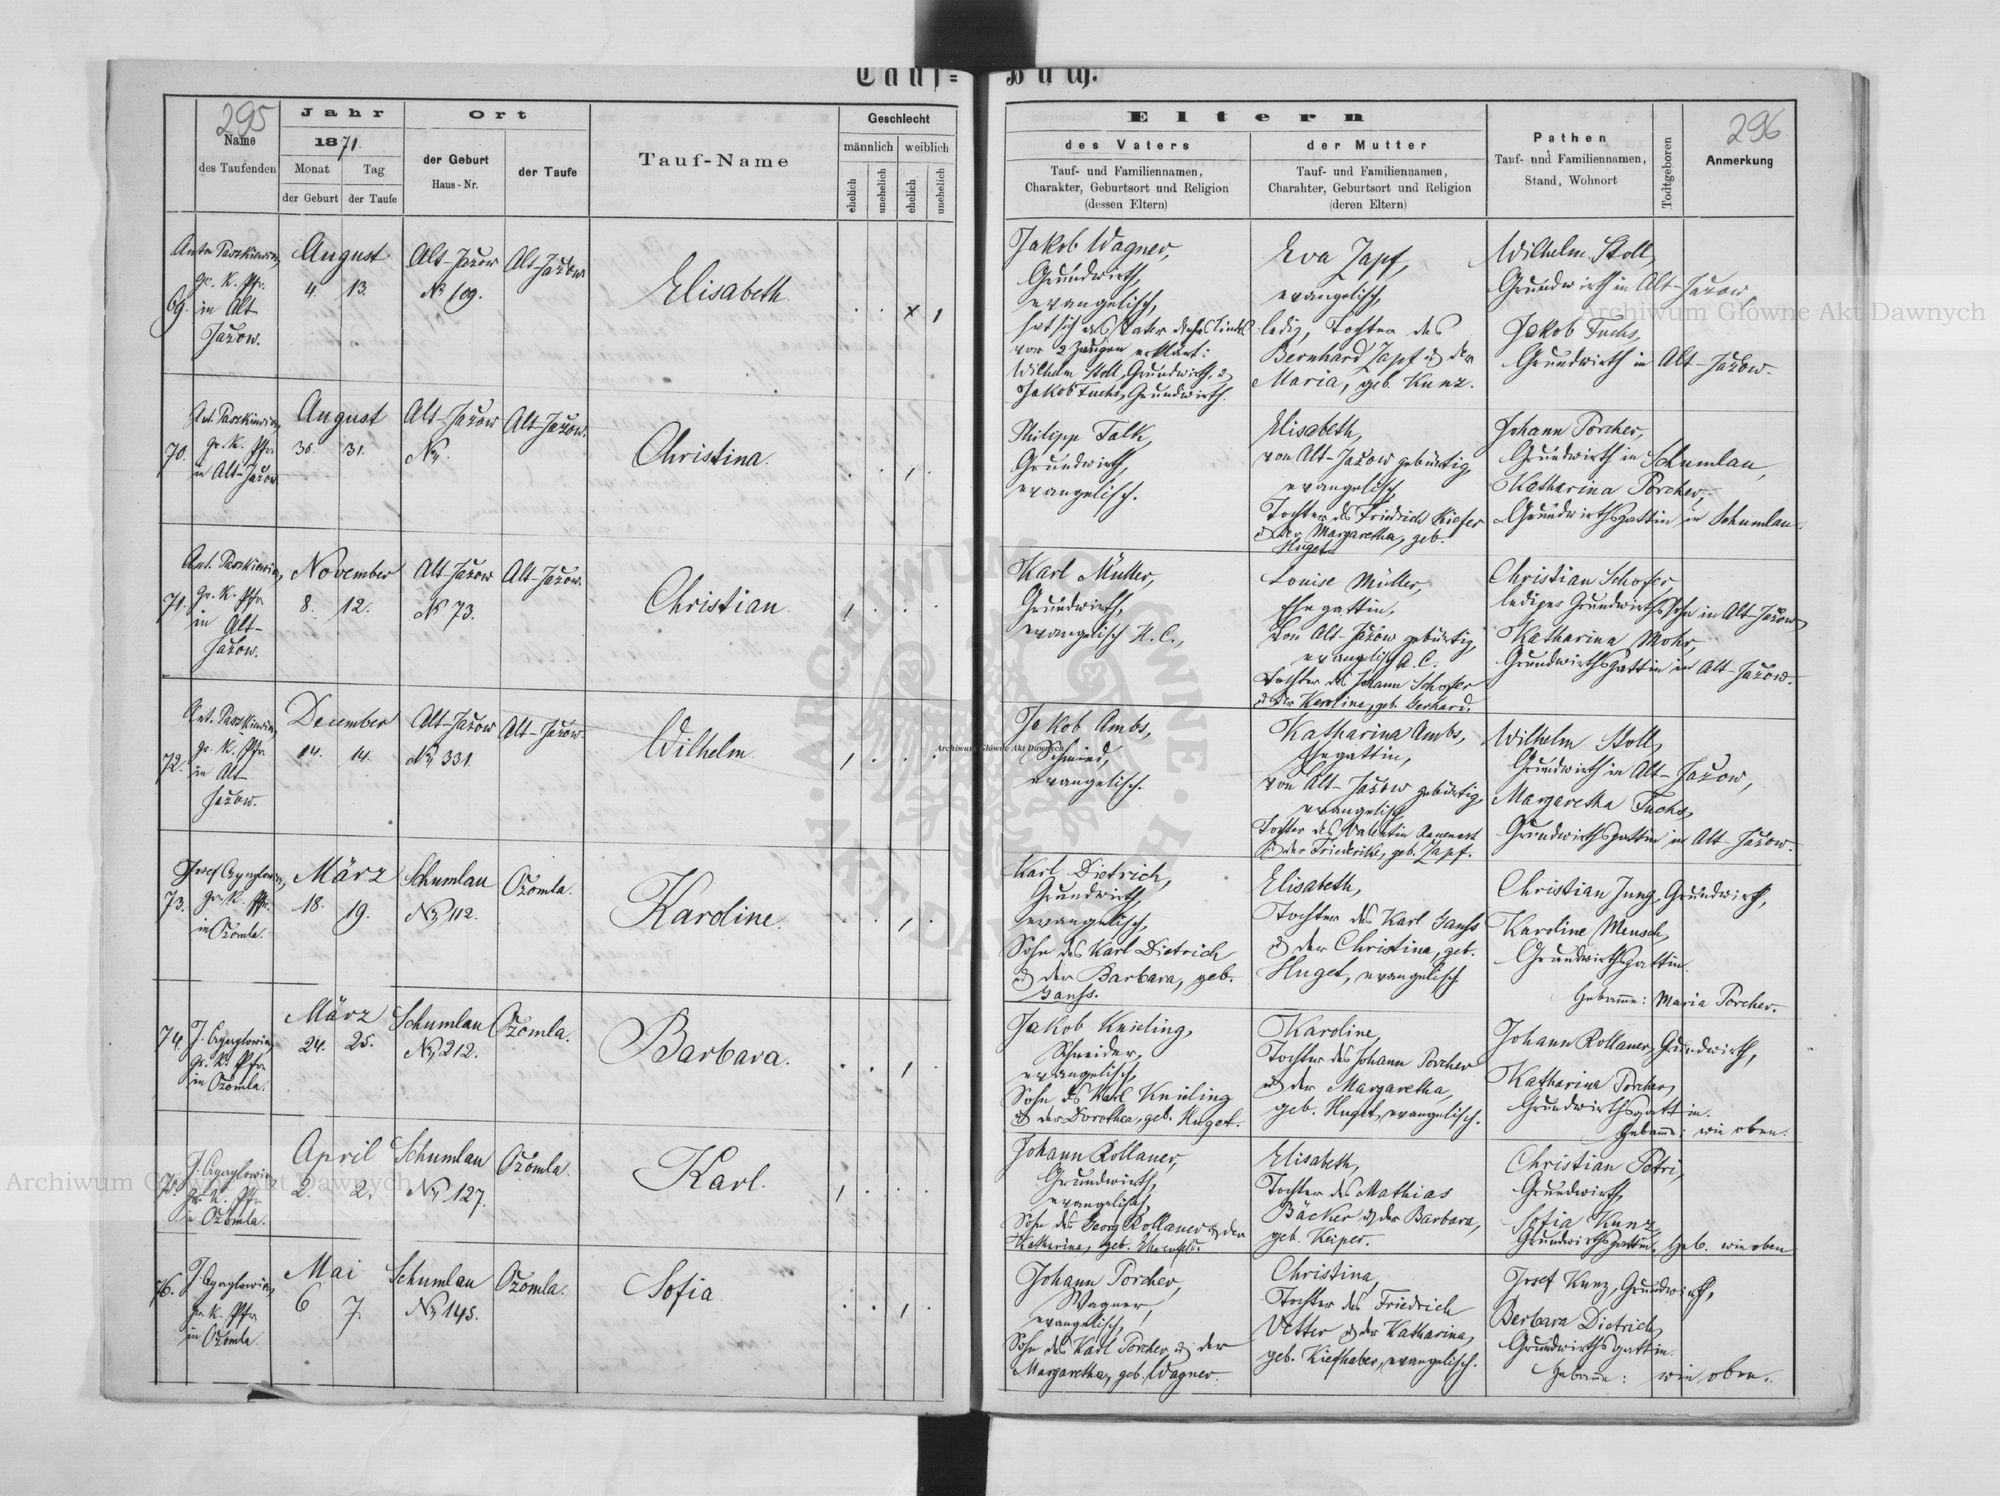 Tauf=Buch.
295
Name
des Taufenden
Jahr
1871.
Monat
Tag
der Geburt
der Taufe
Ort
der Geburt
Haus-Nr.
der Taufe
Tauf-Name
Geschlecht
männlich
weiblich
ehelich
unehelich
ehelich
unehelich
Eltern
des Vaters
Tauf- und Familiennamen,
Charakter, Geburtsort und Religion
(dessen Eltern)
der Mutter
Tauf- und Familiennamen,
Charahter, Geburtsort und Religion
(deren Eltern)
Pathen
Tauf- und Familiennamen,
Stand, Wohnort
Todtgeboren
296
Anmerkung
69.
gr. K. Pfr.
in Alt
Jazow.
August
4. 13.
Alt-Jazow
№ 109.
Alt-Jazow
Elisabeth.
Jakob Wagner,
Grundwirth,
evangelisch,
hat sich als Vater dieses Kindes
vor 2 Zeugen erklärt:
Wilhelm Stoll, Grundwirth, &
Jakob Fuchs, Grundwirth.
Eva Zapf,
evangelisch,
ledig, Tochter des
Bernhard Zapf & der
Maria, geb. Kunz.
Wilhelm Stoll,
Grundwirth in Alt-Jazow,
Jakob Fuchs,
Grundwirth in Alt-Jazow.
70.
gr. K. Pfr.
in Alt-Jazow
August
30. 31.
Alt-Jazow
№
Alt-Jazow.
Christina.
Philipp Falk,
Grundwirth,
evangelisch.
Elisabeth,
von Alt-Jazow gebürtig,
evangelisch,
Tochter des Friedrich Kiefer
& der Margaretha, geb.
Huget.
Johann Porcher,
Grundwirth in Schumlau,
Katharina Porcher,
Grundwirthsgattin in Schumlau.
71.
gr. K. Pfr
in Alt-
Jazow.
November
8. 12.
Alt-Jazow
№ 73.
Alt-Jazow.
Christian.
Karl Müller,
Grundwirth,
evangelisch H. C.,
Louise Müller,
Ehegattin,
von Alt-Jazow gebürtig,
evangelisch A. C.
Tochter des Johann Schofer
& der Karoline, geb. Gerhard.
Christian Schofer,
lediger Grundwirthssohn in Alt-Jazow,
Katharina Mohr,
Grundwirthsgattin in Alt-Jazow.
72.
gr. K. Pfr
in Alt
Jazow.
December
14. 14.
Alt-Jazow
№ 331.
Alt-Jazow.
Wilhelm.
Jakob Ambs,
Schmied,
evangelisch.
Katharina Ambs,
Ehegattin,
von Alt-Jazow gebürtig,
evangelisch,
Tochter des Valentin
& der Friederike, geb. Zapf.
Wilhelm Stoll,
Grundwirth in Alt-Jazow,
Margaretha Fuchs,
Grundwirthsgattin in Alt-Jazow.
73.
gr. K. Pfr.
in Ozomla.
März
18. 19.
Schumlau
№ 112.
Ozomla.
Karoline.
Karl Dietrich,
Grundwirth,
evangelisch,
Sohn des Karl Dietrich
& der Barbara, geb.
Janss.
Elisabeth,
Tochter des Karl Janss
& der Christina, geb.
Huget, evangelisch
Christian Jung, Grundwirth,
Karoline Mensch,
Grundwirthsgattin.
Hebamme: Maria Porcher.
74.
gr. K. Pfr
in Ozomla.
März
24. 25.
Schumlau
№ 212.
Ozomla.
Barbara.
Jakob Knieling,
Schneider,
evangelisch,
Sohn des Karl Knieling
& der Dorothea, geb. Huget.
Karoline,
Tochter des Johann Porcher
& der Margaretha,
geb. Huget, evangelisch.
Johann Rollauer, Grundwirth,
Katharina Porcher,
Grundwirthsgattin.
Hebamme: wie oben.
75.
gr. K. Pfr
in Ozomla.
April
2. 2.
Schumlau
№ 127.
Ozomla.
Karl.
Johann Rollauer,
Grundwirth,
evangelisch,
Sohn des Georg Rollauer & der
Katharina, geb.
Elisabeth,
Tochter des Mathias
Bäcker & der Barbara,
geb. Keiper.
Christian Petri,
Grundwirth,
Sofia Kunz,
Grundwirthsgattin. Heb. wie oben
76.
gr. K. Pfr
in Ozomla.
Mai
6 7.
Schumlau
№ 145.
Ozomla.
Sofia.
Johann Porcher,
Wagner,
evangelisch,
Sohn des Karl Porcher & der
Margaretha, geb. Wagner.
Christina,
Tochter des Friedrich
Vetter & der Katharina,
geb. Kiefhaber, evangelisch.
Josef Kunz, Grundwirth,
Barbara Dietrich,
Grundwirthsgattin
Hebamme: wie oben.
Archiwum Główne Akt Dawnych
Archiwum Główne Akt Dawnych
Archiwum Główne Akt Dawnych
ARCHIWUM GŁÓWNE AKT DAWNYCH